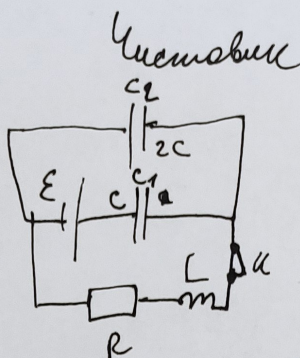 Чистовик
C2
2C
ℰ C C1
L K
R